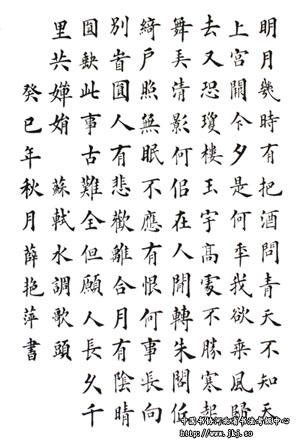 明月幾時有把酒問青天不知天
上宮闕今夕是何年我欲乘風歸
去又恐瓊樓玉宇高處不勝寒起
舞弄清影何佀在人間轉朱閣低
綺戶照無眠不應有恨何事長向
別旹圓人有悲歡離合月有陰晴
圓缺此事古難全但願人長久千
里共嬋娟 蘇軾水調歌頭
癸巳年秋月薛艳萍書